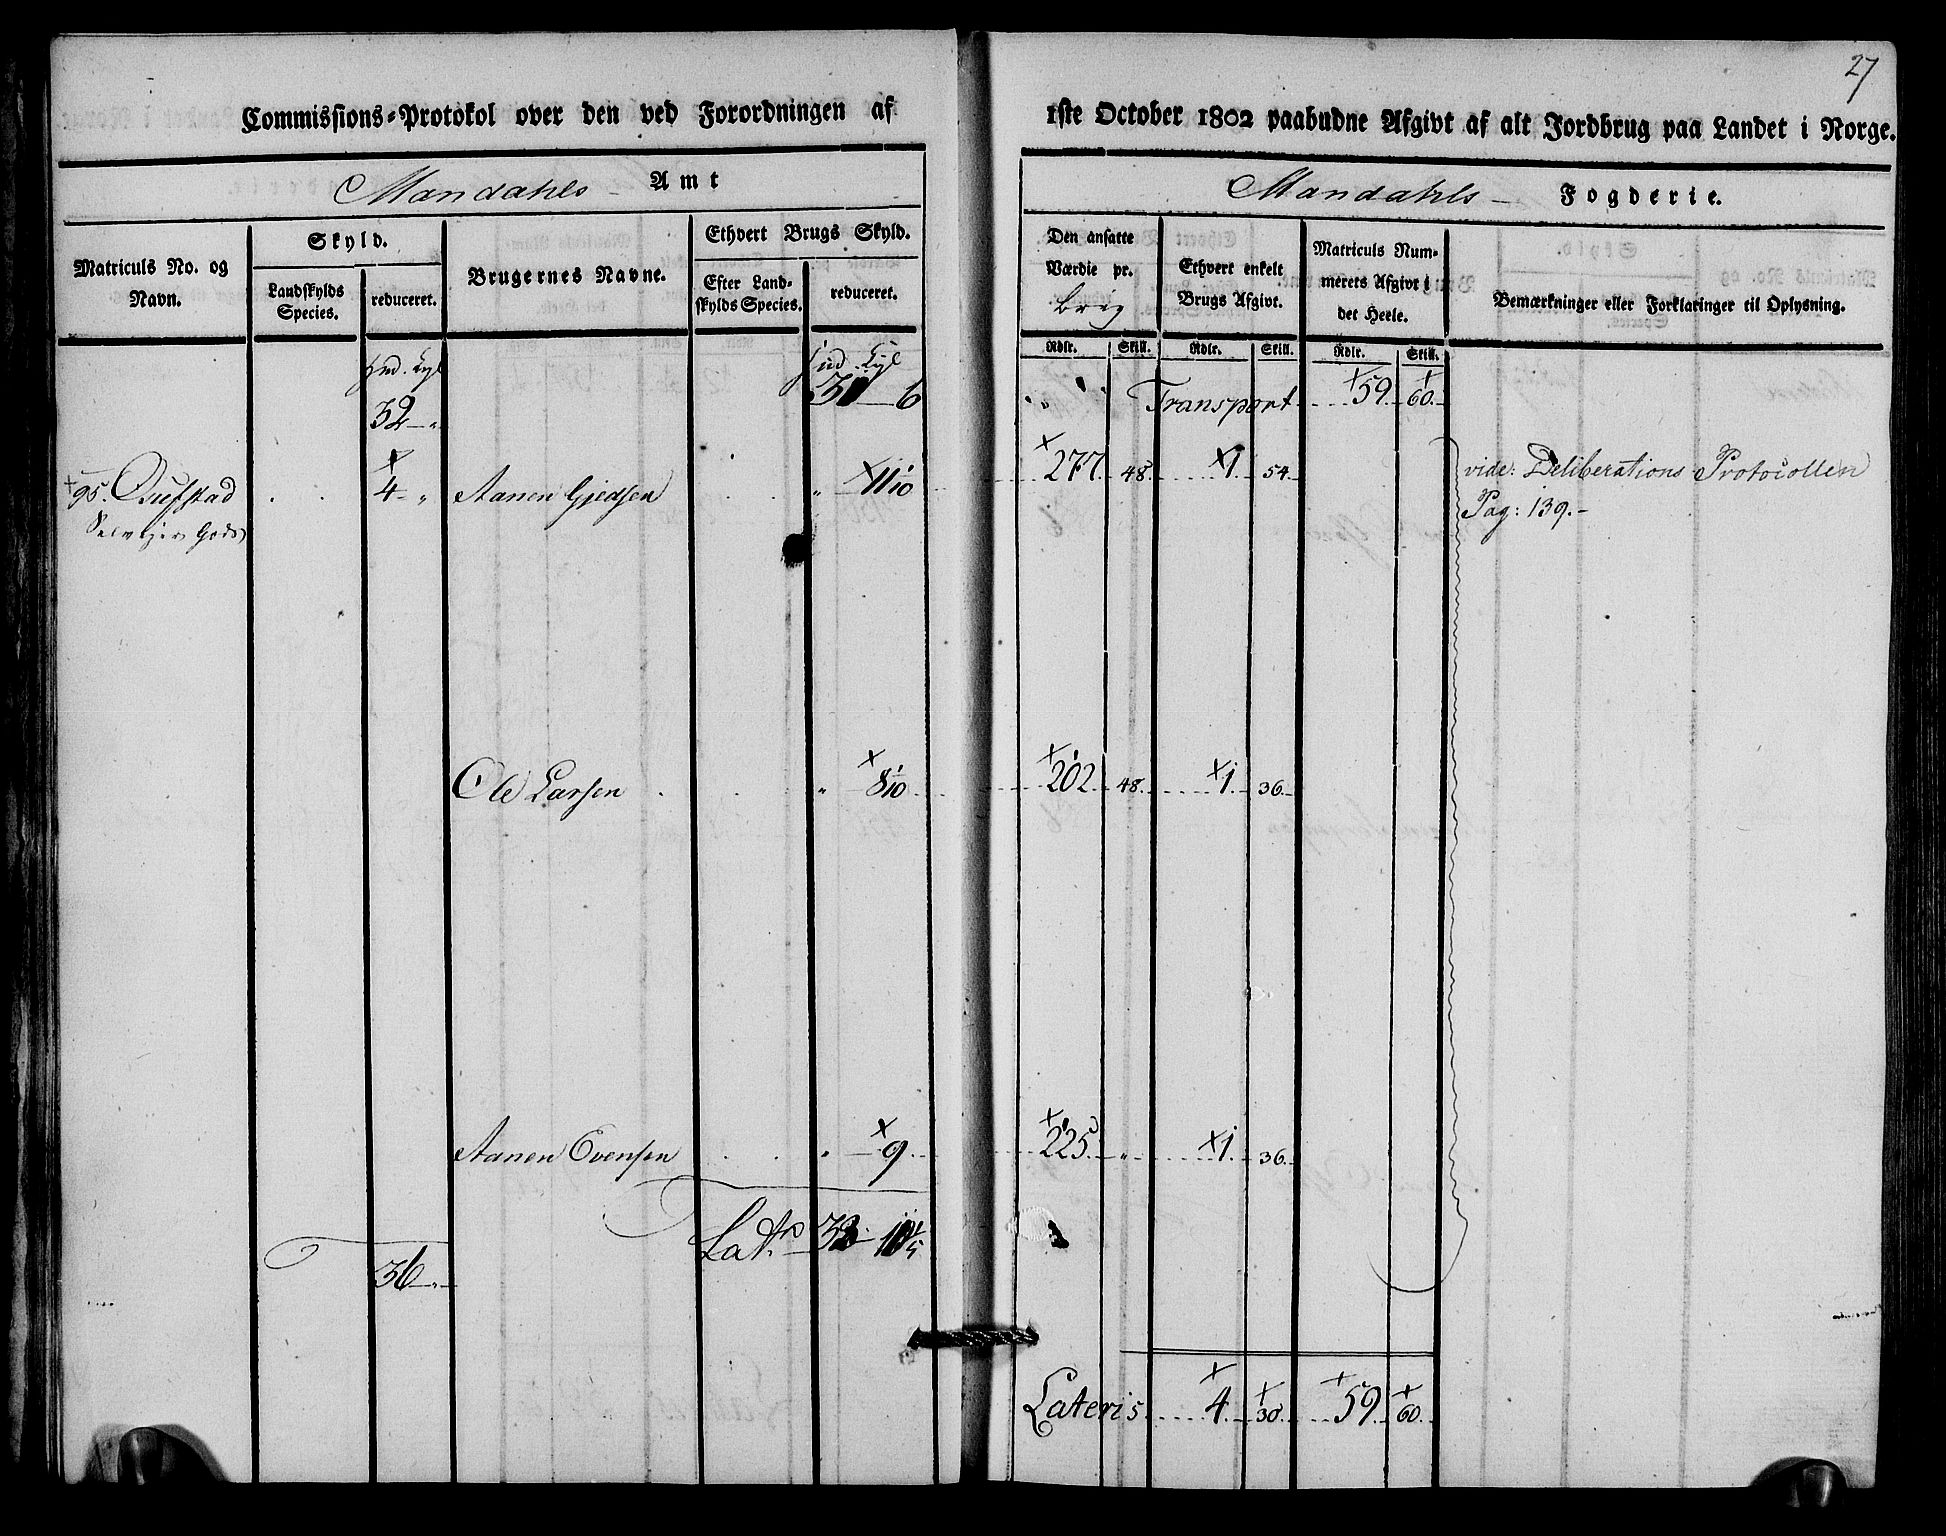 27
Commissions-Protokol over den ved Forordningen af 1ste October 1802 paabudne Afgivt af alt Jordbrug paa Landet i Norge.
Mandahls - Amt
Mandahls - Fogderie.
Matriculs No. og Navn.
Skyld.
Landskylds Species.
reduceret.
Brugernes Navne.
Ethvert Brugs Skyld.
Efter Landskylds Species.
reduceret.
Den ansatte Værdie pr. brug
Ethvert enkelt Brugs Afgivt.
Matriculs Nummerets Afgivt i det Heele.
Bemærkninger eller Forklaringer til Oplysning.
Rdlr. Skill. Rdlr. Skill. Rdlr. Skill.
32 - " 31 - 6 Transport 59. 60.
95. 4 - " Aanen Gjedsen " 11 1/10 277. 48. 1. 54. vide: Deliberations Protocollen
Gods Pag: 139. -
Ole Larsen " 8 1/10 202. 48. 1. 36.
Aanen Evensen " 9. 225. " 1. 36.
Latr. 10 1/5
36 - "
Lateris 4. 30. 59. 60.